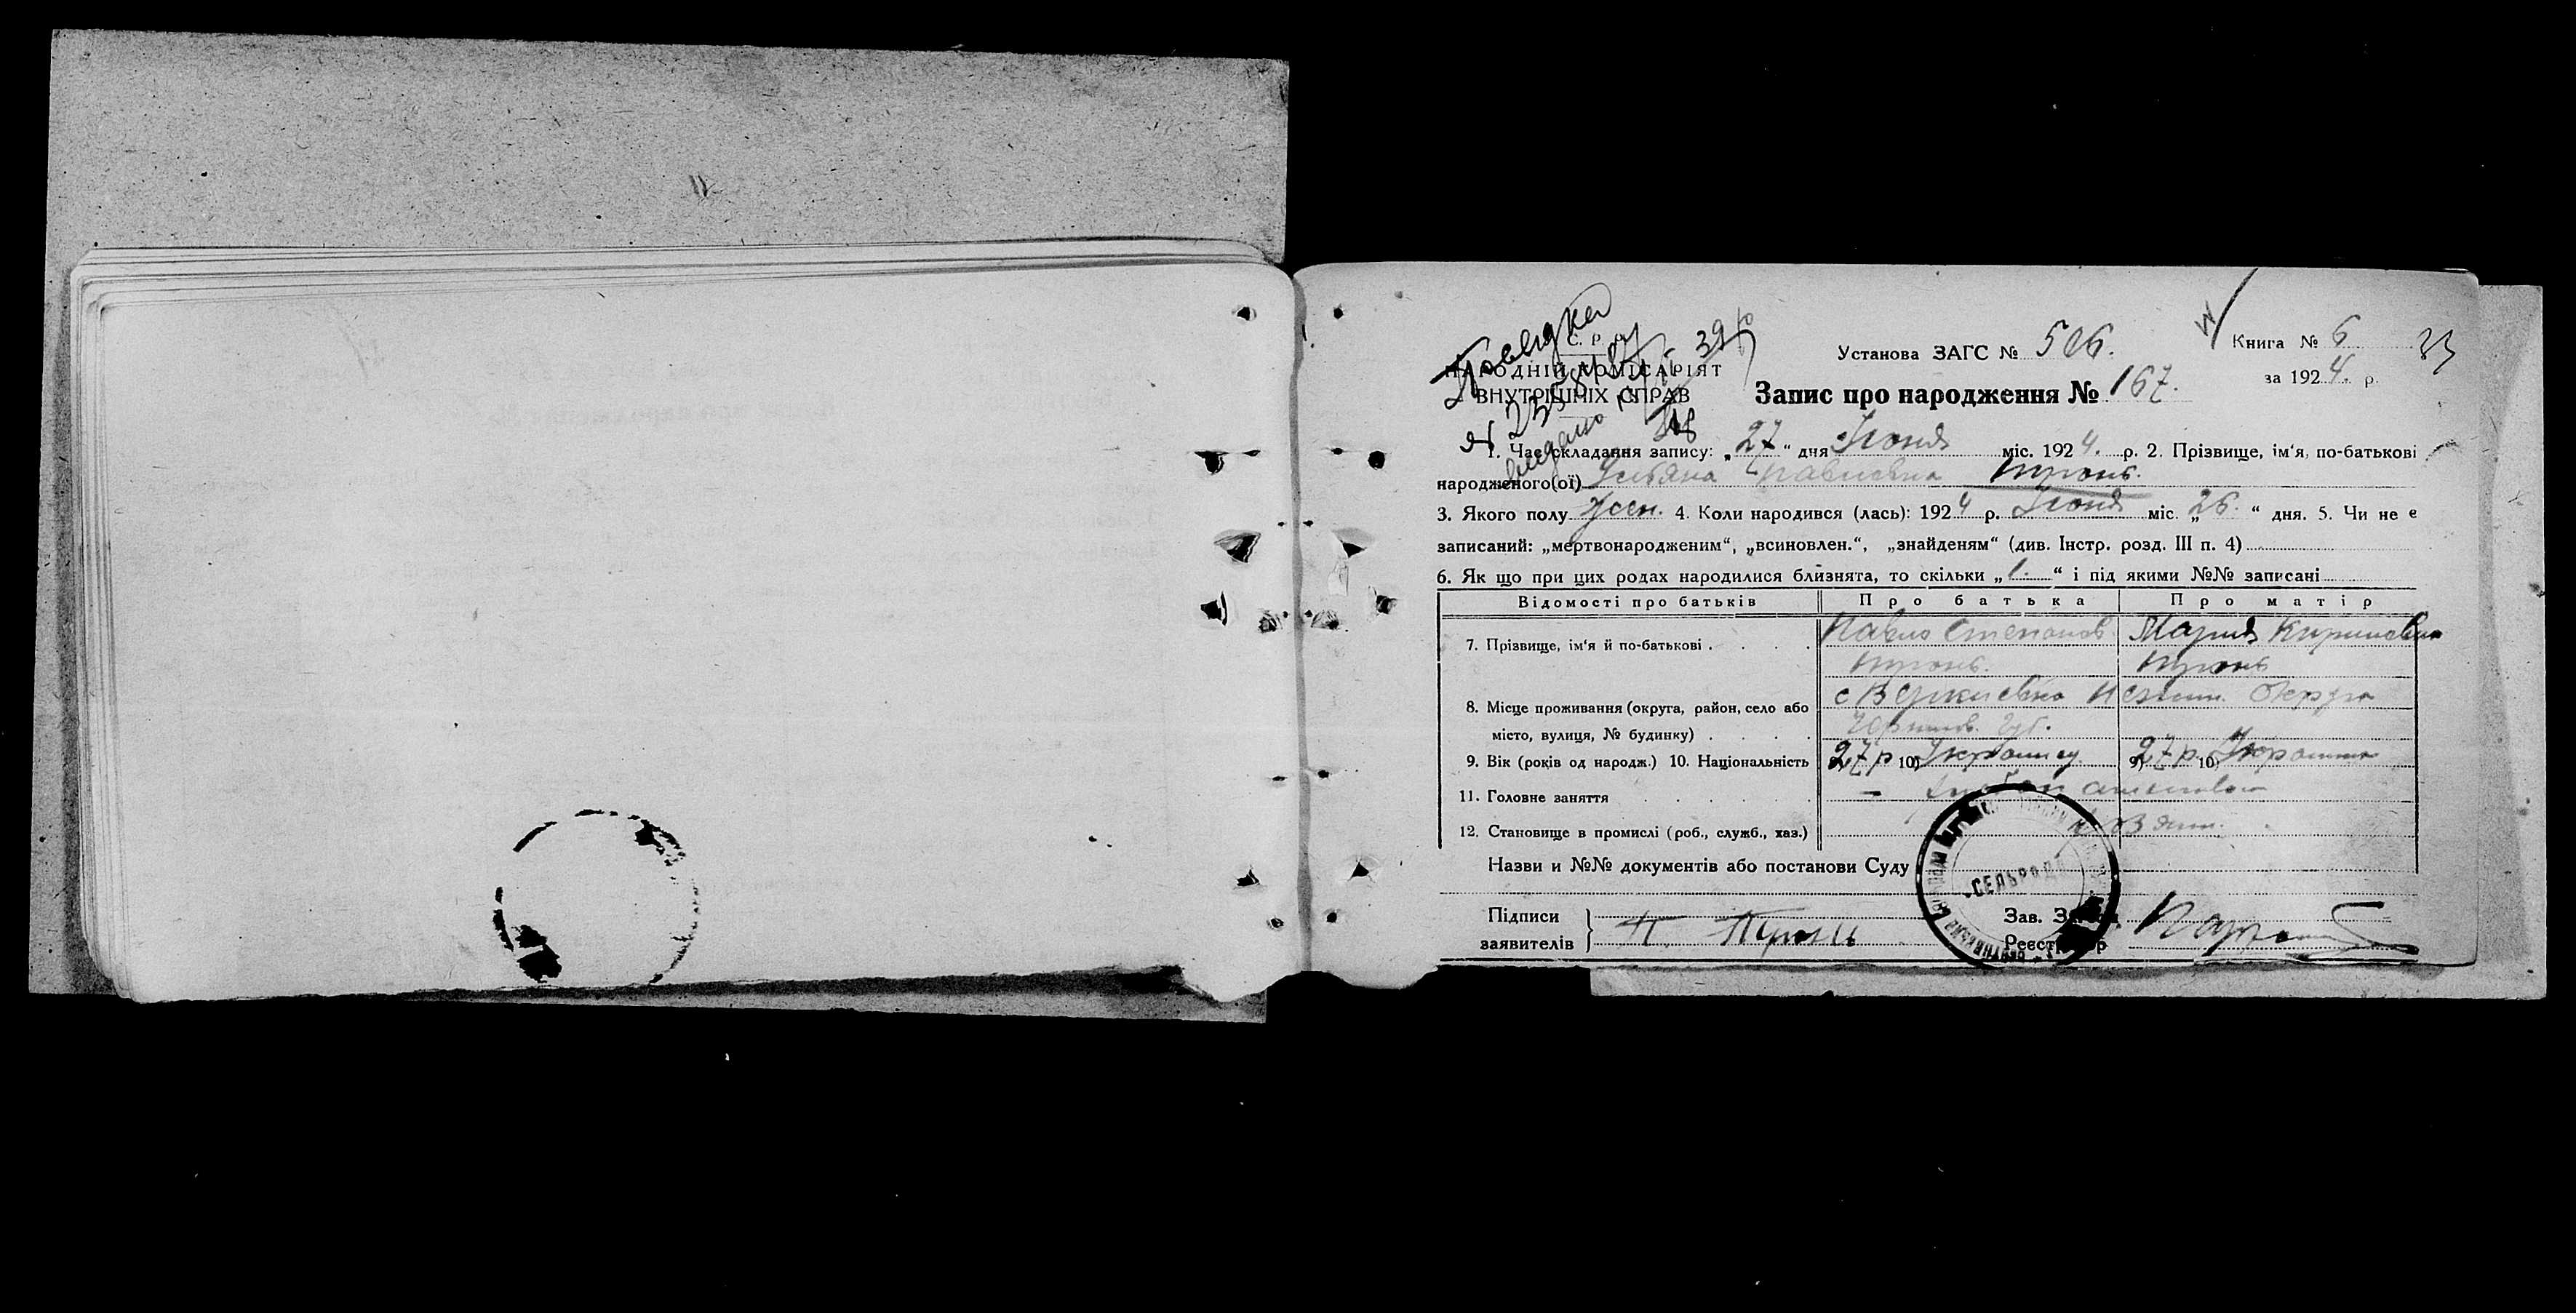 Посвідка
С. Р. Р.
НАРОДНІЙ КОМІСАРІЯТ
ВНУТРІШНІХ СПРАВ
Установа ЗАГС № 506.
Книга № 6
33
за 1924 р.
Запис про народження № 167.
1. Час складання запису: „27“ дня Июня міс. 1924 р. 2. Прізвище, ім'я, по-батькові
народженого(ої) Уліяна Павловна Пронь.
3. Якого полу жен. 4. Коли народився (лась): 1924 р. Июня міс. „26.“ дня. 5. Чи не є
записаний: „мертвонародженим“, „всиновлен.“, „знайденям“ (див. Інстр. розд. III п. 4)
6. Як що при цих родах народилися близнята, то скільки „1.“ і під якими №№ записані
Відомості про батьків Про батька Про матір
7. Прізвище, ім'я й по-батькові Павло Степанов. Мария Кириловна
Пронь. Пронь
8. Місце проживання (округа, район, село або с Веркиевка Нежин. Округа
місто, вулиця, № будинку) Черниг. Губ.
9. Вік (років од народж.) 10. Національність 27 р 10) Украинец 9) 27 р. 10) Украинка
11. Головне заняття
12. Становище в промислі (роб., служб., хаз.)
Назви и №№ документів або постанови Суду
СЕЛЬРАДА
Підписи
заявителів П. Пронь
Зав. Загсу
Реєстратор